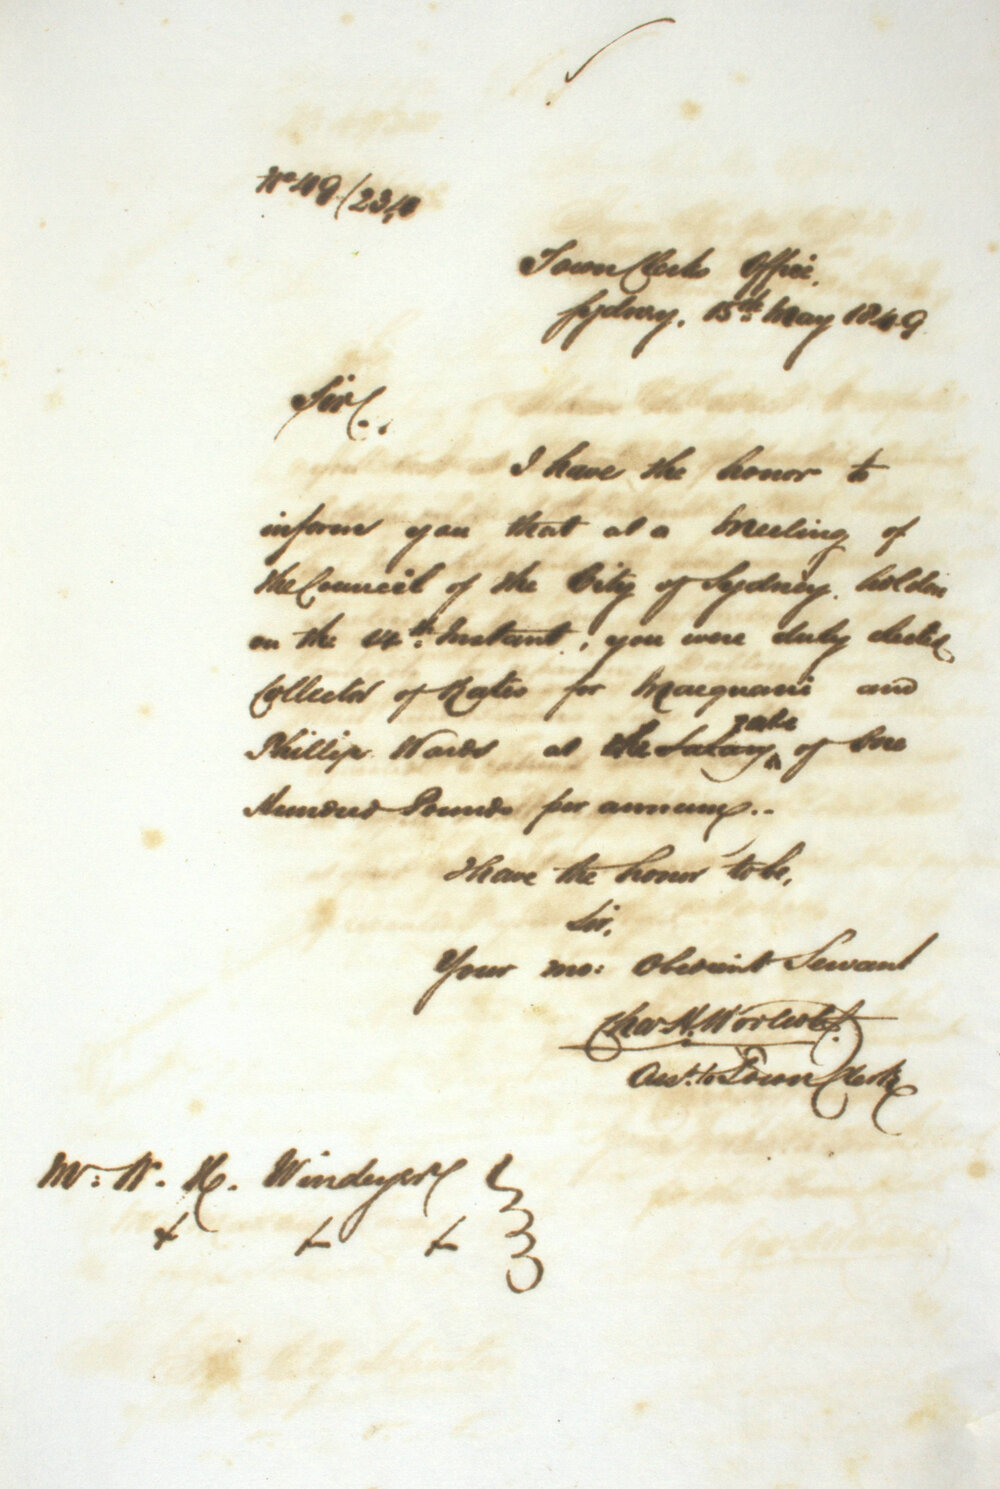 No 49/234
Town Clerks Office,
Sydney, 15th May 1849
Sir,
I have the honor to
inform you that at a Meeting of
the Council of the City of Sydney, holden
on the 14th Instant, you were duly elected
Collector of Rates for Macquarie and
Phillip Wards at the Salary rate of One
Hundred Pounds per annum..
I have the honor to be,
Sir,
Your mo: Obedient Servant
Chas H. Woolcott
Asst. to Town Clerk
Mr. W. H. Windeyer